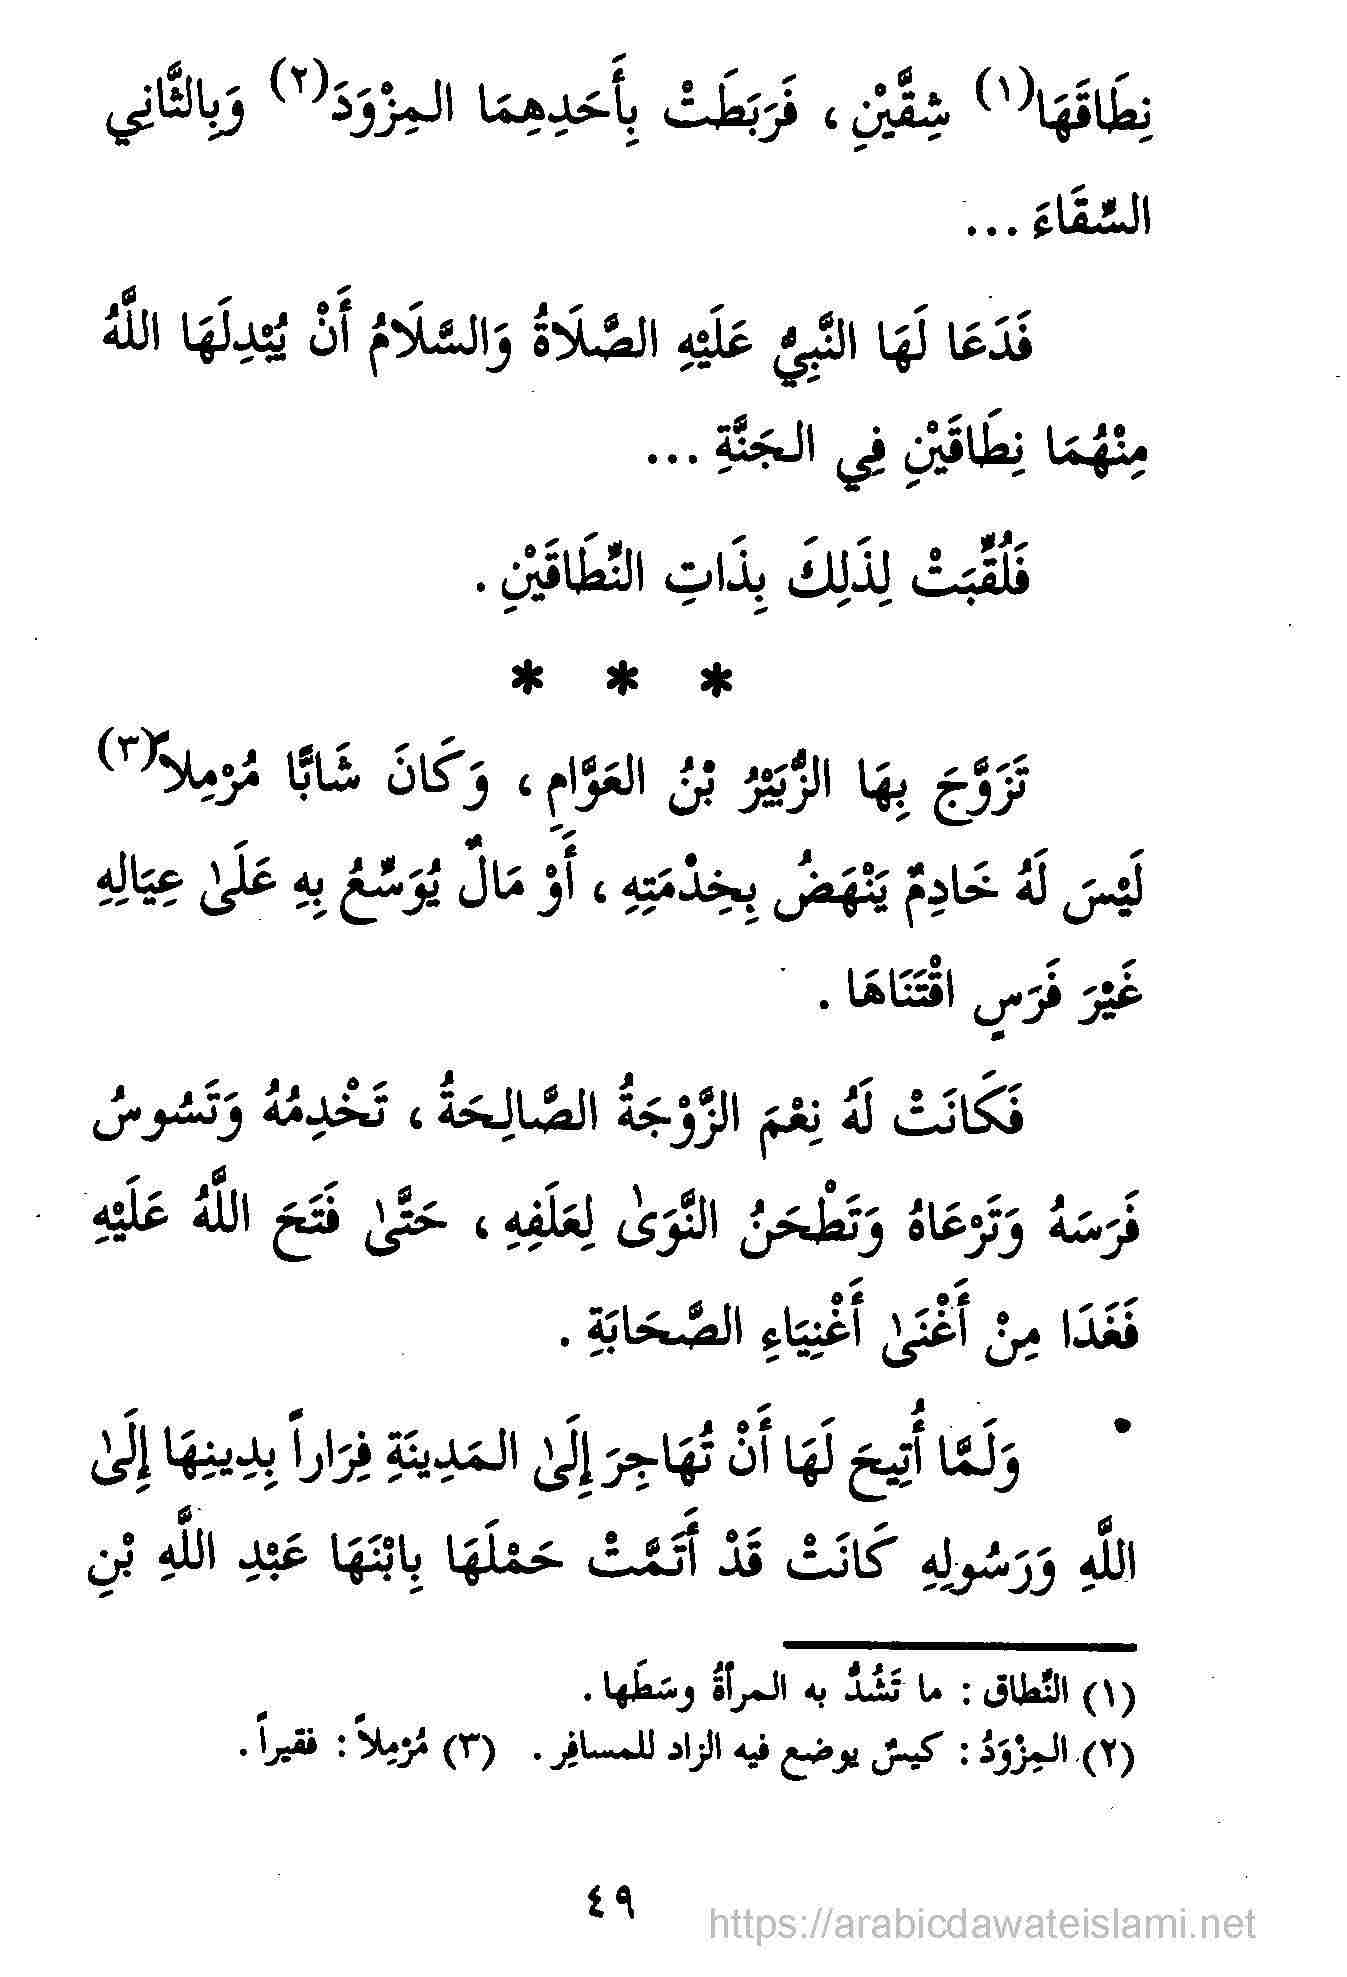 نِطَاقَهَا(١) شِقَّيْنِ ، فَرَبَطَتْ بِأَحَدِهِمَا المِزْوَدَ(٢) وَبِالثَّانِي
السِّقَاءَ ...
فَدَعَا لَهَا النَّبِيُّ عَلَيْهِ الصَّلَاةُ وَالسَّلَامُ أَنْ يُبْدِلَهَا اللَّهُ
مِنْهُمَا نِطَاقَيْنِ فِي الجَنَّةِ ...
فَلُقِّبَتْ لِذَلِكَ بِذَاتِ النِّطَاقَيْنِ .
* * *
تَزَوَّجَ بِهَا الزُّبَيْرُ بْنُ العَوَّامِ ، وَكَانَ شَابًّا مُرْمِلاً(٣)
لَيْسَ لَهُ خَادِمٌ يَنْهَضُ بِخِذْمَتِهِ ، أَوْ مَالٌ يُوَسِّعُ بِهِ عَلَىٰ عِيَالِهِ
غَيْرَ فَرَسٍ اقْتَنَاهَا .
فَكَانَتْ لَهُ نِعْمَ الزَّوْجَةُ الصَّالِحَةُ ، تَخْدِمُهُ وَتَسُوسُ
فَرَسَهُ وَتَرْعَاهُ وَتَطْحَنُ النَّوَىٰ لِعَلَفِهِ ، حَتَّىٰ فَتَحَ اللَّهُ عَلَيْهِ
فَغَدَا مِنْ أَغْنَىٰ أَغْنِيَاءِ الصَّحَابَةِ .
وَلَمَّا أُتِيحَ لَهَا أَنْ تُهَاجِرَ إِلَىٰ المَدِينَةِ فِرَاراً بِدِينِهَا إِلَىٰ
اللَّهِ وَرَسُولِهِ كَانَتْ قَدْ أَتَمَّتْ حَمْلَهَا بِابْنَهَا عَبْدِ اللَّهِ بْنِ
(١) النِّطاق : ما تَشُدُّ به المرأةُ وسَطَها .
(٢) المِزْوَدُ : كيسٌ يوضع فيه الزاد للمسافِر . (٣) مُرْمِلاً : فقيراً .
٤٩
https://arabicdawateislami.net